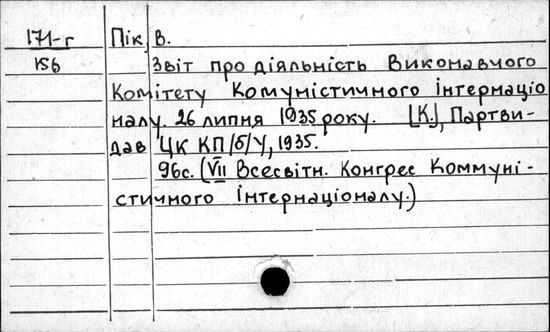 171-г Пік, В.
156 Звіт про діяльність Виконавчого
Комітету Комуністичного інтернаціо
налу. 26 липня 1935 року. [К.], Партви-
дав ЦК КП/б/У, 1935.
96с. (VII Всесвітн. Конгрес Коммуні-
стичного Інтернаціоналу.)